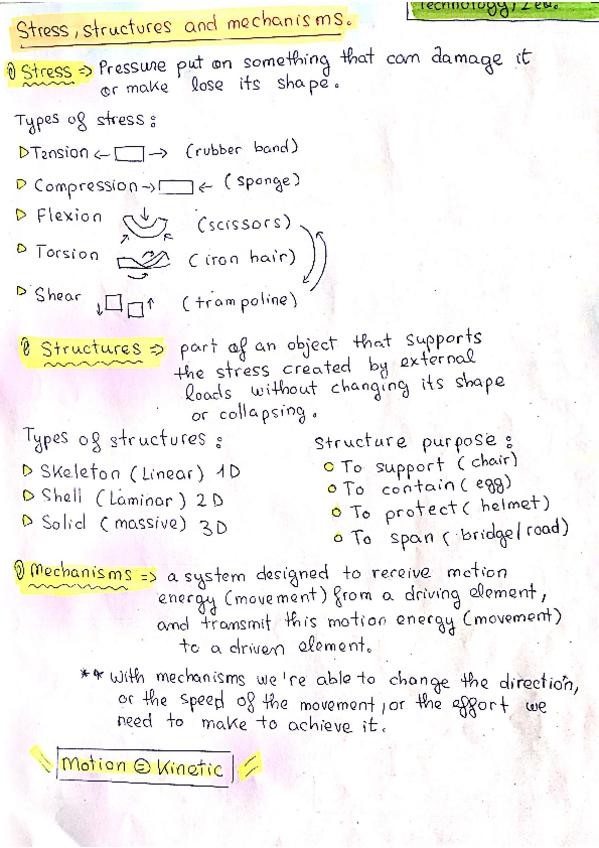 Technology, Leo.
Stress, structures and mechanisms.
Stress => Pressure put on something that can damage it
or make lose its shape.
Types of stress:
Tension ← → (rubber band)
Compression → ← (sponge)
Flexion (scissors)
Torsion (iron hair)
Shear (trampoline)
Structures => part of an object that supports
the stress created by external
loads without changing its shape
or collapsing.
Types of structures:
Skeleton (Linear) 1D
Shell (Laminar) 2D
Solid (massive) 3D
Structure purpose:
To support (chair)
To contain (egg)
To protect (helmet)
To span (bridge/road)
Mechanisms => a system designed to receive motion
energy (movement) from a driving element,
and transmit this motion energy (movement)
to a driven element.
** with mechanisms we're able to change the direction,
or the speed of the movement, or the effort we
need to make to achieve it.
Motion = Kinetic